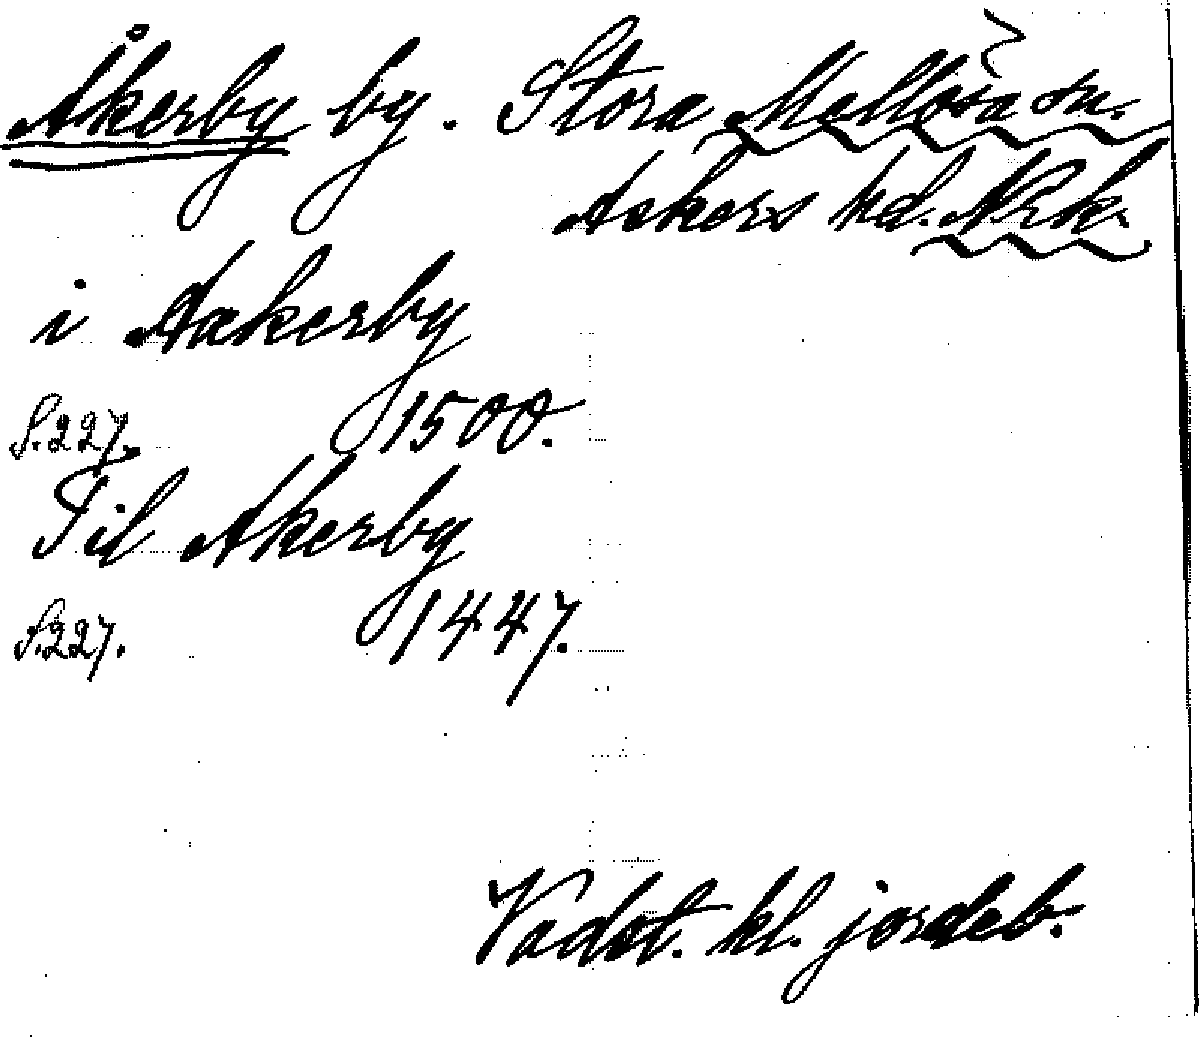 Åkerby by. Stora Mellösa sn.
Askers hd. Nrk.
i Aakerby
S.227. 1500.
Til Akerby
S.227. 1447.
Vadst. kl. jordeb.